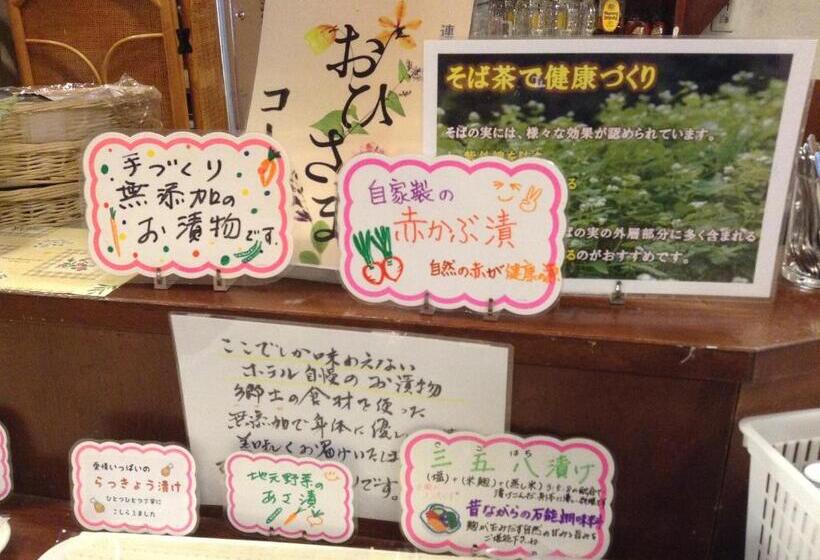 おひさま
コー
そば茶で健康づくり
そばの実には、様々な効果が認められています。
ばの実の外層部分に多く含まれる
るのがおすすめです。
手づくり
無添加の
お漬物です。
自家製の
赤かぶ漬
自然の赤が健康の源
ここでしか味わえない
ホテル自慢のお漬物
郷土の食材を使った
無添加で身体に優し
美味しくお届けいたしま
です。
愛情いっぱいの
らっきょう漬け
ひとつひとつ丁寧に
こしらえました
地元野菜の
あさ漬
三五八漬け
(塩)+(米麹)+(蒸し米)
昔ながらの万能調味料